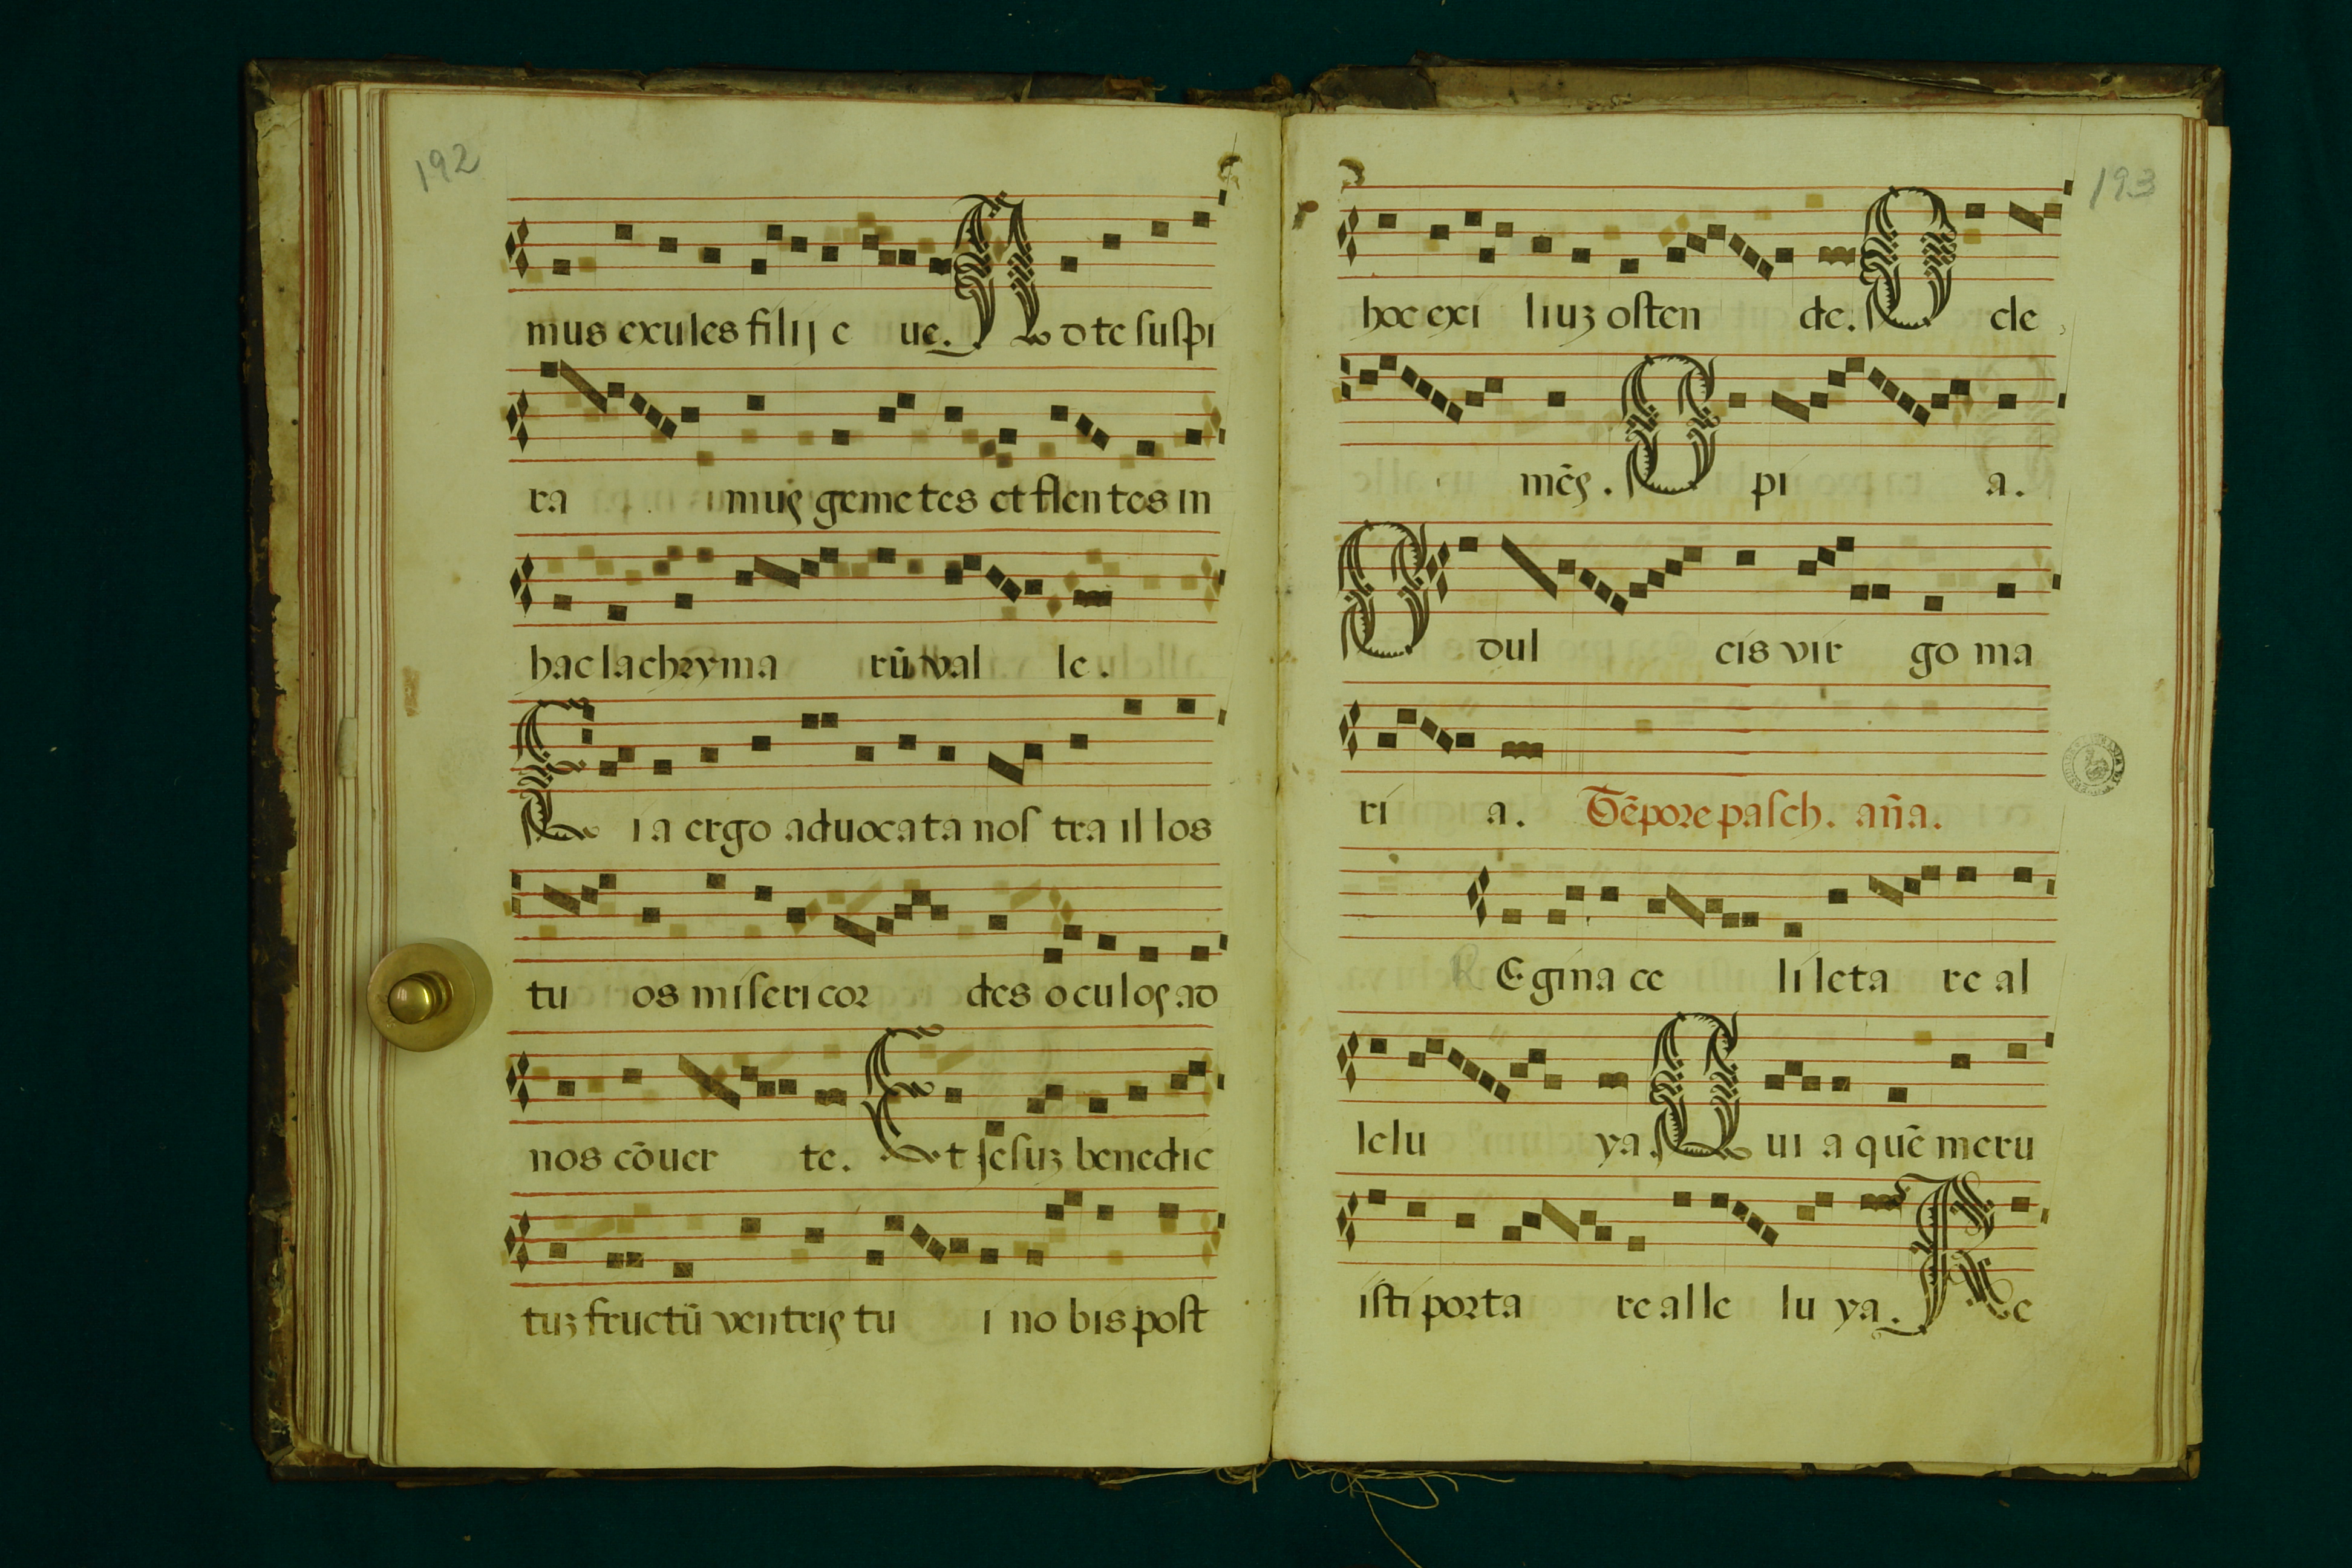 192
mus exules filij e ue. Ad te suspi
ra mus gemetes et flentes in
hac lachryma rū val le.
Eia ergo aduocata nos tra il los
tu os misericor des oculos ad
nos cōuer te. Et Jesuz benedic
tuz fructū ventris tu i no bis post
193
hoc exi liuz osten de. O cle
mēs. O pi a.
O dul cis vir go ma
ri a. Tēpore pasch. aña.
REgina ce li leta re al
lelu ya. Qui a quē meru
isti porta re alle lu ya. Re